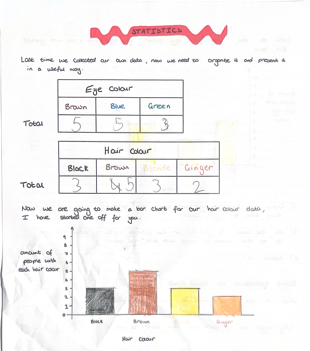 STATISTICS
Last time we collected our own data, now we need to organise it and present it
in a useful way.
Eye Colour
Brown Blue Green
Total 5 5 3
Hair Colour
Black Brown Blonde Ginger
Total 3 5 3 2
Now we are going to make a bar chart for our hair colour data,
I have started one off for you.
amount of
people with
each hair colour
9
8
7
6
5
4
3
2
1
0
Black Brown Ginger
Hair Colour